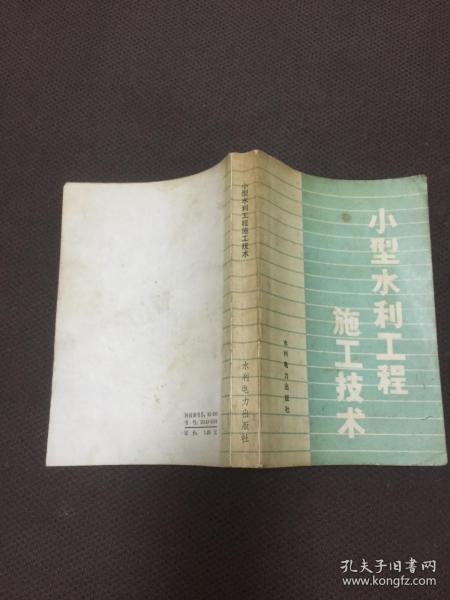 小型水利工程
施工技术
水利电力出版社
小型水利工程施工技术
水利电力出版社
孔夫子旧书网
www.kongfz.com